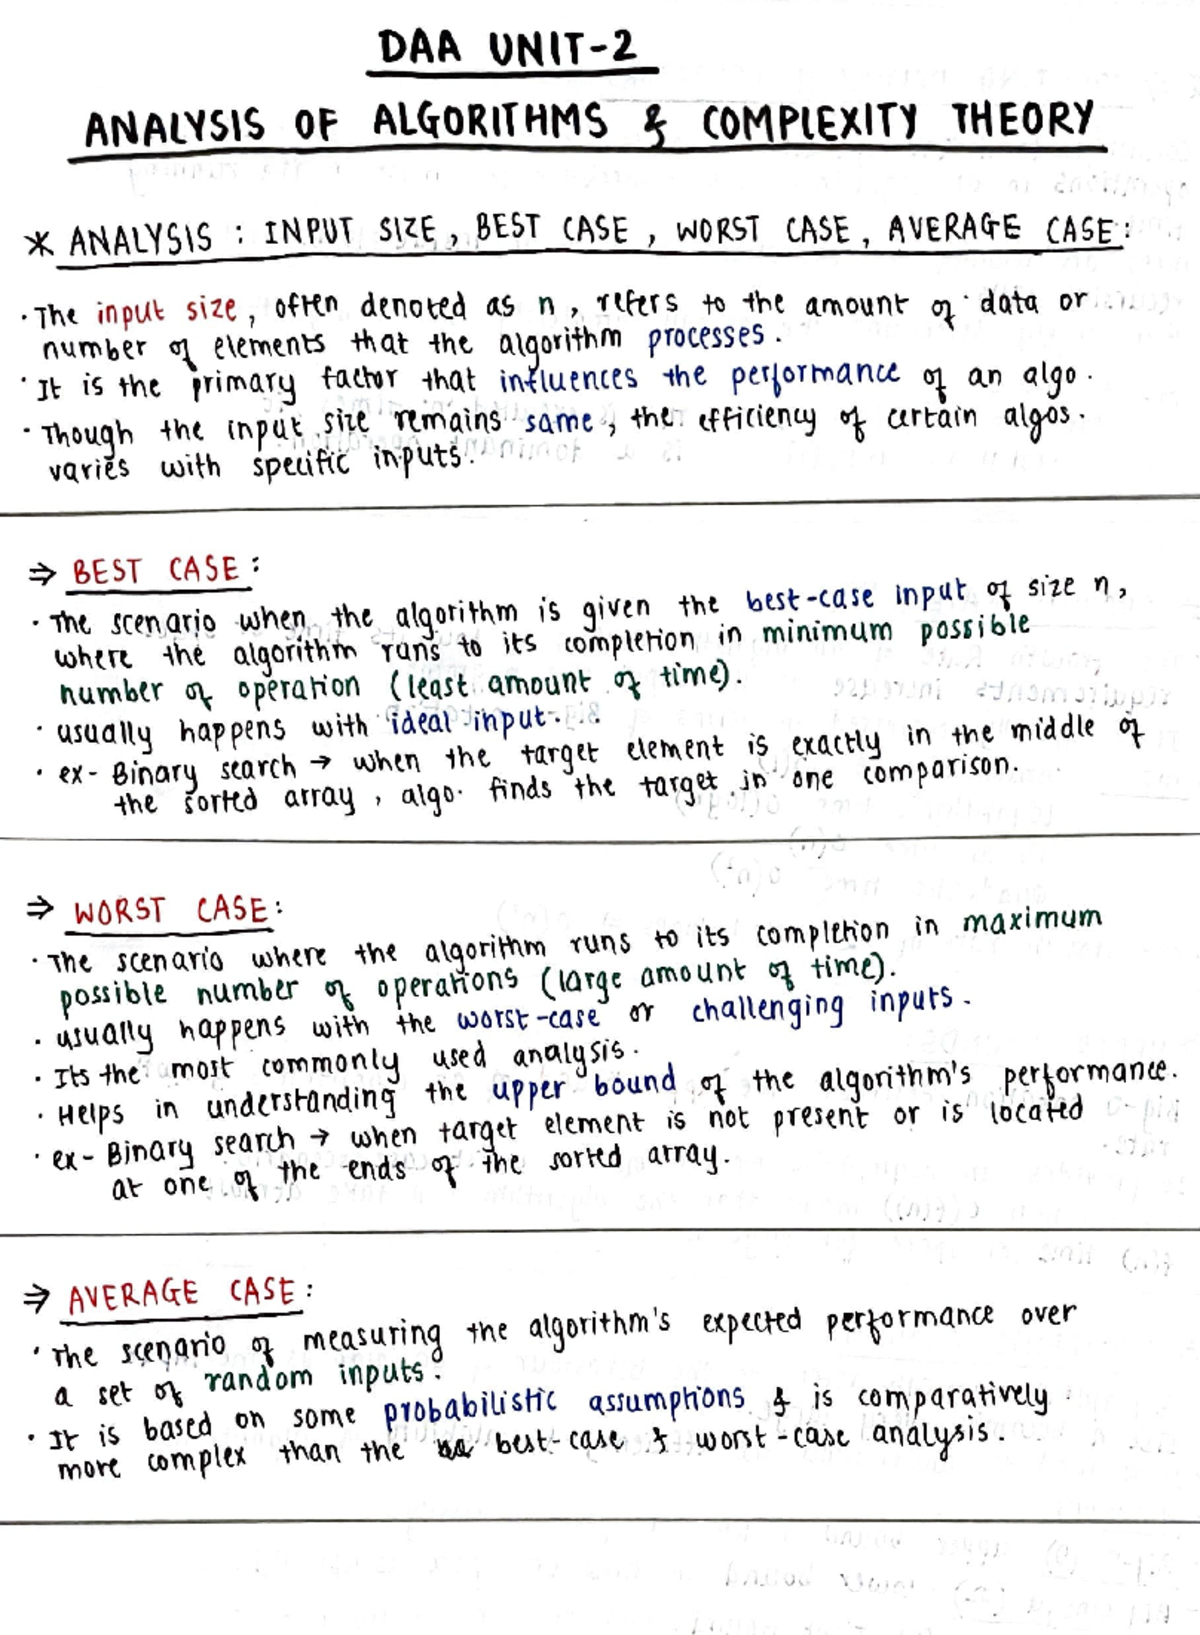 DAA UNIT-2
ANALYSIS OF ALGORITHMS & COMPLEXITY THEORY
* ANALYSIS : INPUT SIZE, BEST CASE, WORST CASE, AVERAGE CASE:
· The input size, often denoted as n, refers to the amount of data or
number of elements that the algorithm processes.
· It is the primary factor that influences the performance of an algo.
· Though the input size remains same, the efficiency of certain algos.
varies with specific inputs.
⇒ BEST CASE:
· The scenario when the algorithm is given the best-case input of size n,
where the algorithm runs to its completion in minimum possible
number of operation (least amount of time).
· usually happens with ideal input.
· ex- Binary search → when the target element is exactly in the middle of
the sorted array, algo. finds the target in one comparison.
⇒ WORST CASE:
· The scenario where the algorithm runs to its completion in maximum
possible number of operations (large amount of time).
· usually happens with the worst-case or challenging inputs.
· Its the most commonly used analysis.
· Helps in understanding the upper bound of the algorithm's performance.
· ex- Binary search → when target element is not present or is located
at one of the ends of the sorted array.
⇒ AVERAGE CASE:
· The scenario of measuring the algorithm's expected performance over
a set of random inputs.
· It is based on some probabilistic assumptions & is comparatively
more complex than the best-case & worst-case analysis.